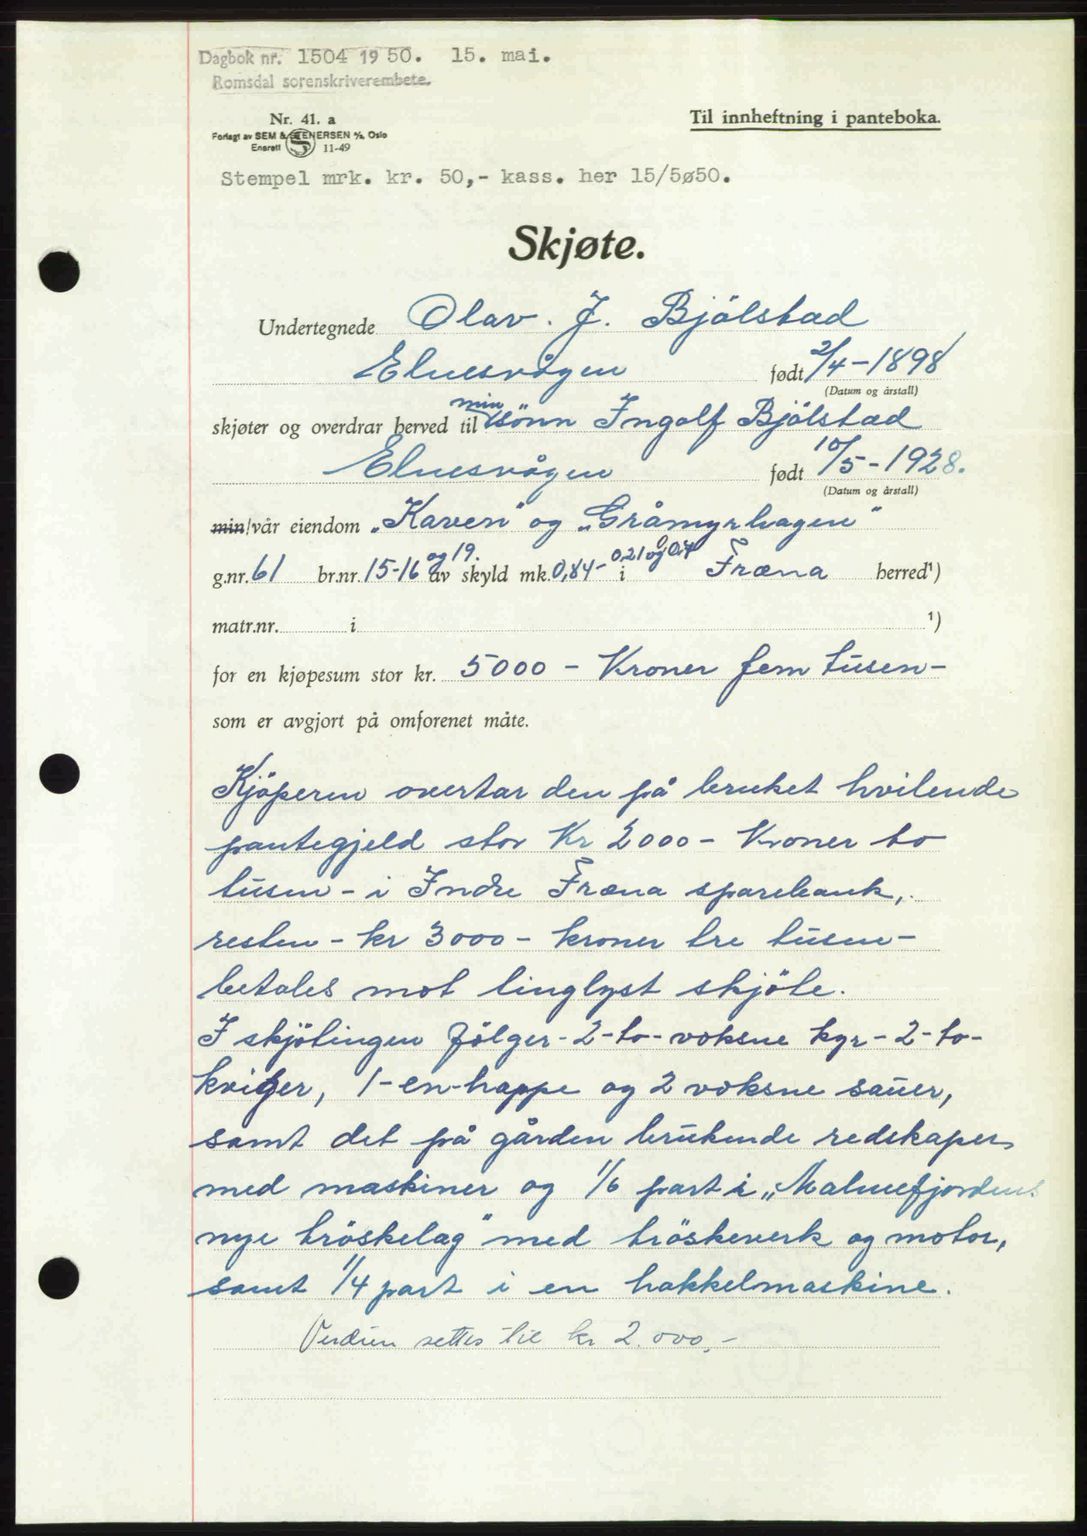 Dagbok nr. 1504 1950. 15. mai.
Romsdal sorenskriverembete.
Nr. 41. a
Til innheftning i panteboka.
Forlagt av SEM & STENERSEN A/S, Oslo
Enerett 11-49
Stempel mrk. kr. 50,- kass. her 15/5ø50.
Skjøte.
Undertegnede Olav. J. Bjölstad
Elnesvågen født 2/4-1898
(Datum og årstall)
skjøter og overdrar herved til min sönn Ingolf Bjölstad
Elnesvågen født 10/5-1928.
(Datum og årstall)
min/vår eiendom „Kaven" og „Gråmyrhagen"
g.nr. 61 br.nr. 15-16 og 19. av skyld mk. 0,84- 0,21 og i Fræna herred¹)
matr.nr. i ¹)
for en kjøpesum stor kr. 5000 - Kroner fem tusen-
som er avgjort på omforenet måte.
Kjöperen overtar den på bruket hvilende
pantegjeld stor Kr 2000- Kroner to
tusen - i Indre Fræna sparebank,.
resten - kr 3000 - kroner tre tusen-
betales mot tinglyst skjöte.
I skjötingen fölger - 2-to-voksne kyr - 2-to-
kviger, 1-en-hoppe og 2 voksne sauer,
samt det på gården brukende redskaper
med maskiner og 1/6 part i „Malmefjordens
nye tröskelag" med tröskeverk og motor,
samt 1/4 part i en hakkelmaskine.
Verdien settes til kr 2.000,-